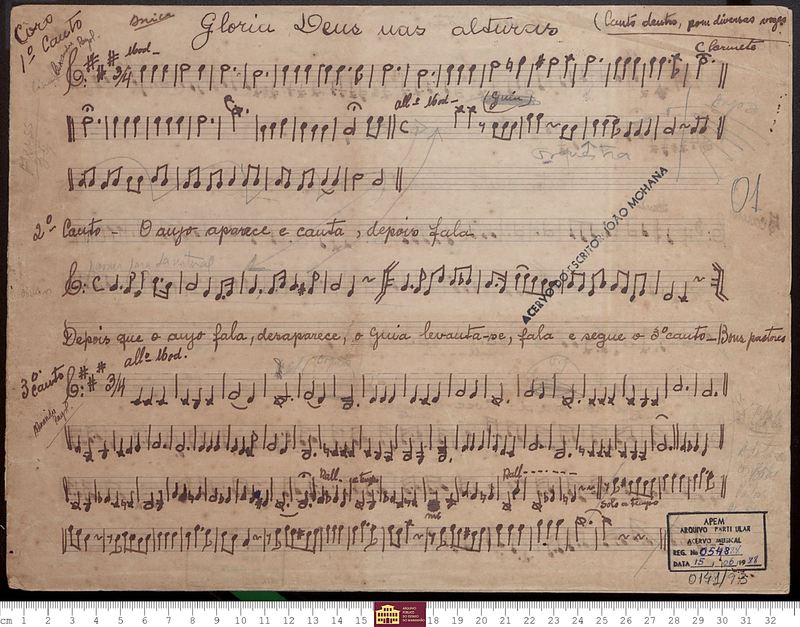 Coro
1º Canto
Gloria Deus nas alturas
(Canto dentro, por diversas vozes
Clarineto
Mod_
3/4
All.º Mod_
(Guia)
C
Orquestra
01
2º Canto - O anjo aparece e canta, depois fala
C
ACERVO DO ESCRITOR JOÃO MOHANA
Depois que o anjo fala, desaparece, o Guia levanta-se, fala e segue o 3º canto - Bons pastores
3º Canto
All.º Mod.
3/4
Rall_ a tempo
Rall-------
mi
Solo a tempo
APEM
ARQUIVO PARTICULAR
ACERVO MUSICAL
REG. No 0548/88
DATA 15, 06, 1988
0141/93
cm 1 2 3 4 5 6 7 8 9 10 11 12 13 14 15 18 19 20 21 22 23 24 25 26 27 28 29 30 31 32
ARQUIVO
PÚBLICO
DO ESTADO
DO MARANHÃO